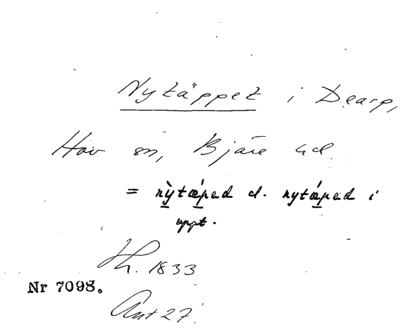 Nytäppet i Dearp,
Hov sn, Bjäre hd.
= nỳtäped d. nytáped i
uppt.
Th. 1833
Nr 7098.
Ant 27.